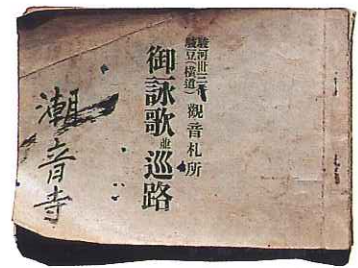 駿河卅三
駿豆(横道)
觀音札所
御詠歌並巡路
潮音寺